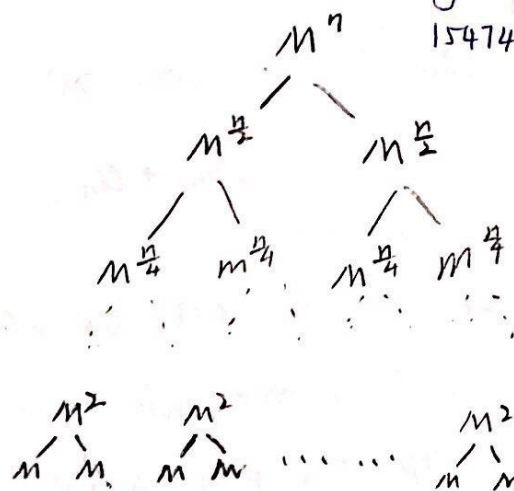 15474
m^n
m^{n/2} m^{n/2}
m^{n/4} m^{n/4} m^{n/4} m^{n/4}
m^2 m^2 m^2
m m m m ...... m m